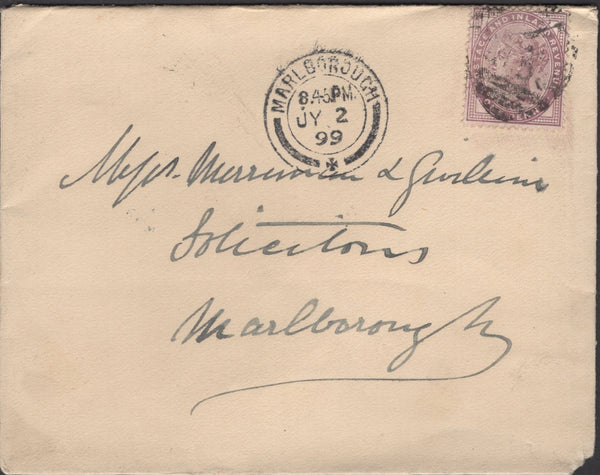 MARLBOROUGH
8.45PM
JY 2
99
POSTAGE AND INLAND REVENUE
ONE PENNY
Messrs. Merriman & Gwillim
Solicitors
Marlborough